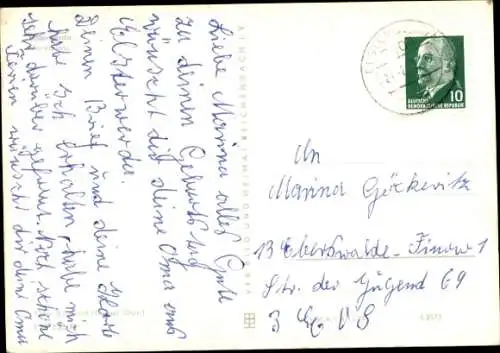 Liebe Marina alles Gute
zu deinen Geburtstag
wünscht dir deine Oma aus
Elsterwerda.
Deinen Brief und deine Karte
habe ich erhalten habe mich
sehr darüber gefreut. Noch schöne
Ferien wünscht dir deine Oma
An
Marina Göckeritz
13 Eberswalde-Finow 1
Str. der Jugend 69
DEUTSCHE
DEMOKRATISCHE REPUBLIK
10
VERLAG BILD UND HEIMAT REICHENBACH I. V.